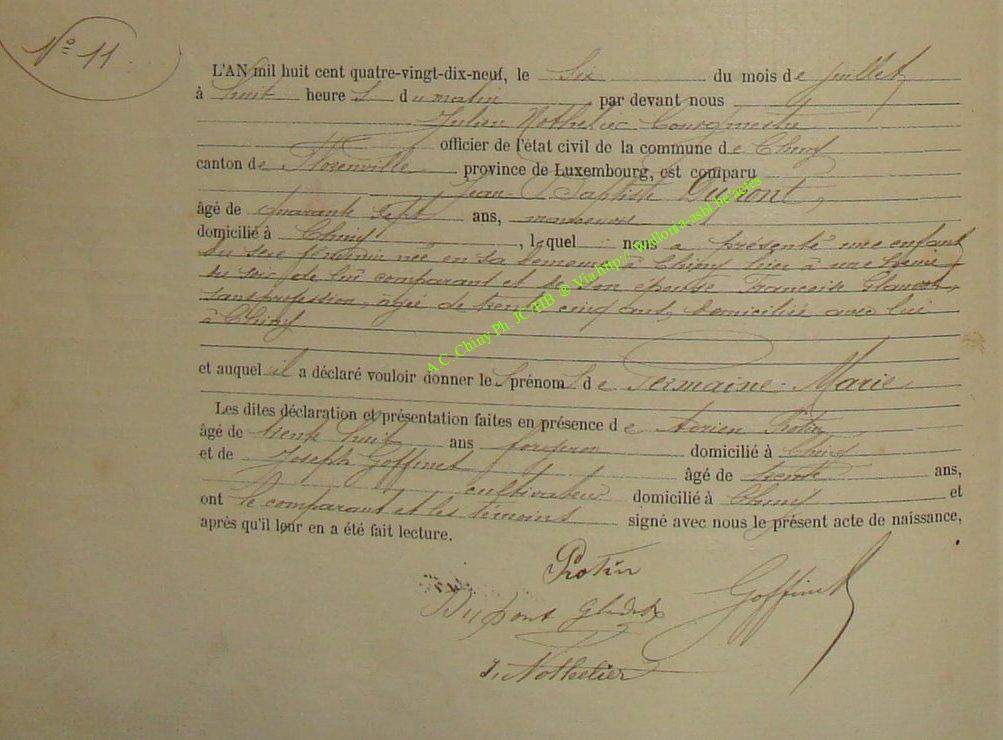 N° 11
L'AN mil huit cent quatre-vingt-dix-neuf, le Six du mois de juillet
à huit heure s du matin par devant nous
Julien Nothelier Bourgmestre
officier de l'état civil de la commune de Chiny
canton de Florenville province de Luxembourg, est comparu
Jean-Baptiste Dupont,
âgé de quarante sept ans, manoeuvre
domicilié à Chiny, lequel nous a présenté une enfant
du sexe féminin née en sa demeure à Chiny hier à une heure
du soir de lui comparant et de son épouse Françoise
sans profession, agée de trente cinq ans, domiciliée avec lui
à Chiny
et auquel il a déclaré vouloir donner les prénoms de Germaine-Marie
Les dites déclaration et présentation faites en présence de Adrien Protin
âgé de trente huit ans forgeron domicilié à Chiny
et de Joseph Goffinet âgé de trente ans,
cultivateur domicilié à Chiny et
ont le comparant et les témoins signé avec nous le présent acte de naissance,
après qu'il leur en a été fait lecture.
Protin
Dupont Goffinet
J. Nothelier
A.C. Chiny Ph. JC/HB ® Via http://wallonia-asbl.be/actes